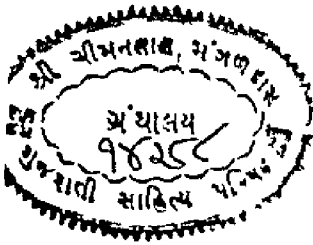 શ્રી ચીમનલાલ, મંગળદાસ
ગ્રંથાલય
૧૪૨૬૮
ગુજરાતી સાહિત્ય પરિષદ